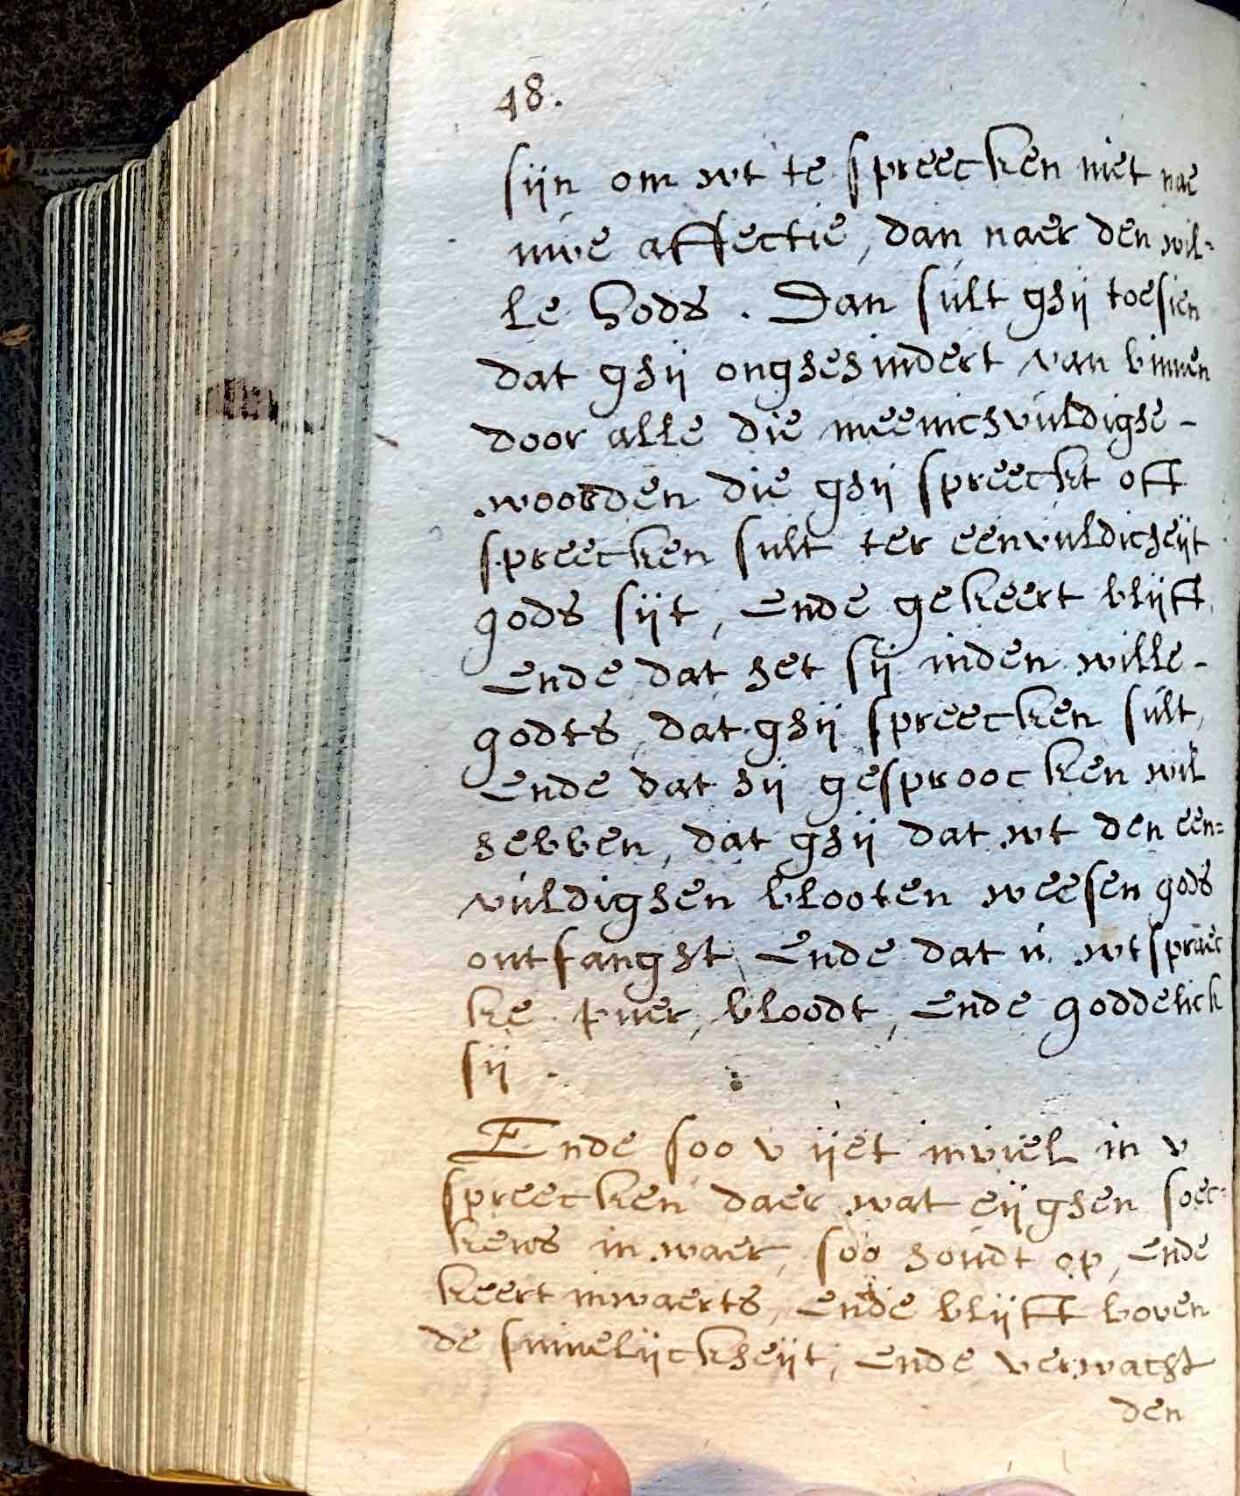 48.
sijn om wt te spreecken niet nae
uwe affectie, dan naer den wil-
le Gods. Dan sult ghij toesien
dat ghij onghehindert van binnen
door alle die meenichvuldighe -
woorden die ghij spreeckt oft
spreecken sult ter eenvuldicheijt
gods sijt, ende gekeert blijft,
Ende dat het sij inden wille -
godts, dat ghij spreecken sult,
Ende dat hij gesproocken wil
hebben, dat ghij dat wt den een=
vuldighen blooten weesen gods
ontfanght, Ende dat u wtspraec
ke puer, bloodt, Ende goddelick
sij -
Ende soo v ijet inviel in v
spreecken daer wat eijghen soec-
kens in waer, soo houdt op, Ende
keert inwaerts, Ende blijft boven
de sinnelijckheijt, Ende verwacht
den